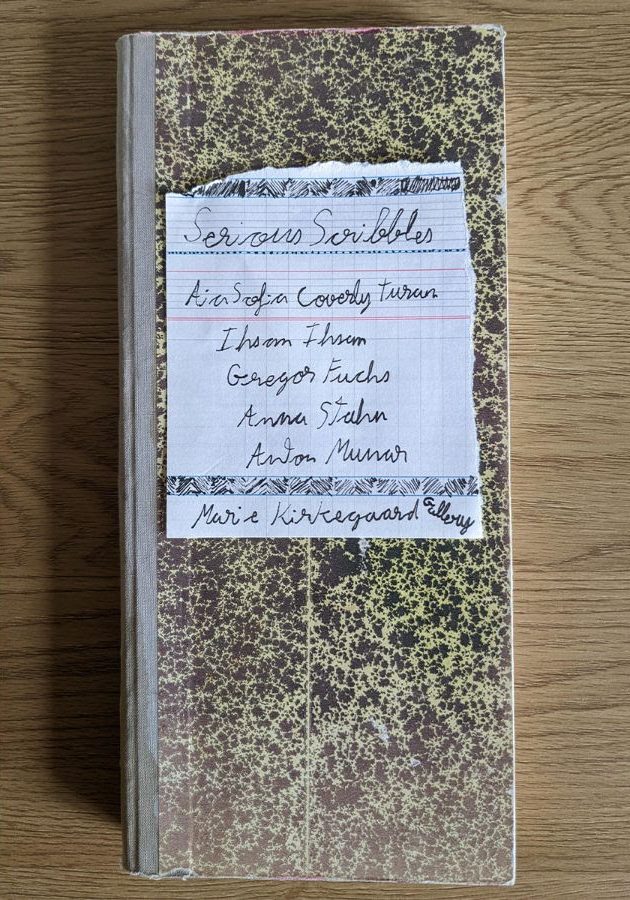 Serious Scribbles
Aia Sofia Coverly Turan
Ihsan Ihsan
Gregor Fuchs
Anna Stahn
Anton Munar
Marie Kirkegaard Gallery